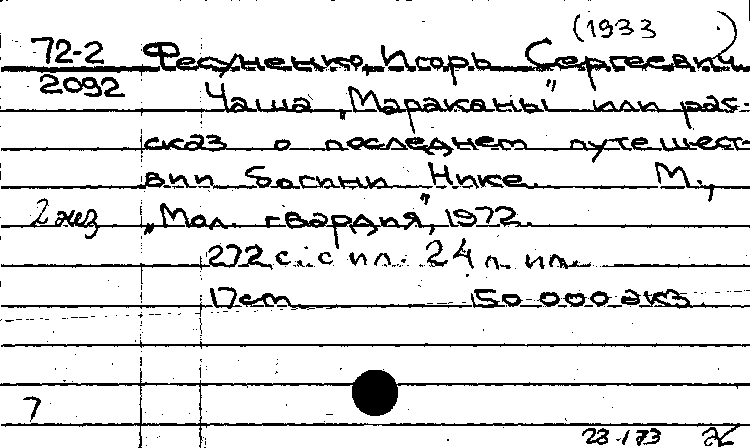 (1933 )
72-2 Фесуненко, Игорь Сергеевич
2092 Чаша „Мараканы" или рас-
сказ о последнем путешест-
вии богини Нике. М.,
2 экз „Мол. гвардия", 1972.
272 с. с ил. 24 л. ил.
17 см 150 000 экз.
7
23-1/73